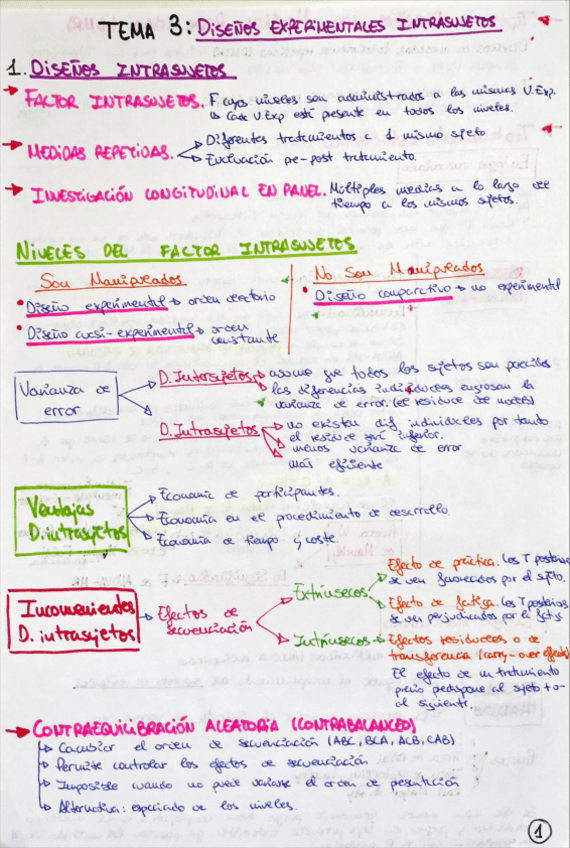 TEMA 3: DISEÑOS EXPERIMENTALES INTRASUJETOS
1. DISEÑOS INTRASUJETOS
FACTOR INTRASUJETOS. F cuyos niveles son administrados a las mismas U.Exp.
Cada U.Exp está presente en todos los niveles.
MEDIDAS REPETIDAS. Diferentes tratamientos a 1 mismo sujeto
Evaluación pre-post tratamiento.
INVESTIGACIÓN LONGITUDINAL EN PANEL. Múltiples medidas a lo largo del
tiempo a los mismos sujetos.
NIVELES DEL FACTOR INTRASUJETOS
Son Manipulados
Diseño experimental → orden aleatorio
Diseño cuasi-experimental → orden
constante
No Son Manipulados
Diseño comparativo → no experimental
Varianza de
error
D. Intersujetos → asume que todos los sujetos son parecidos
las diferencias individuales engrosan la
varianza de error. (el residual del modelo)
D. Intrasujetos → no existen dif individuales por tanto
el residual será inferior.
menos varianza de error
más eficiente
Ventajas
D. intrasujetos
Economía de participantes.
Economía en el procedimiento de desarrollo.
Economía de tiempo y coste.
Inconvenientes
D. intrasujetos
Efectos de
secuenciación
Extrínsecos
Efecto de práctica. Los T posterior
se ven favorecidos por el sujto.
Efecto de fatiga. Los T posterios
se ven perjudicados por el fatiga
Intrínsecos → Efectos residuales o de
transferencia (carry-over effects)
El efecto de un tratamiento
previo predispone al sujeto + o -
al siguiente.
CONTRAEQUILIBRACIÓN ALEATORIA (CONTRABALANCEO)
Cambiar el orden de secuenciación (ABC, BCA, ACB, CAB)
Permite controlar los efectos de secuenciación
Imposible cuando no puede variarse el orden de presentación
Alternativa: espaciado de los niveles.
1